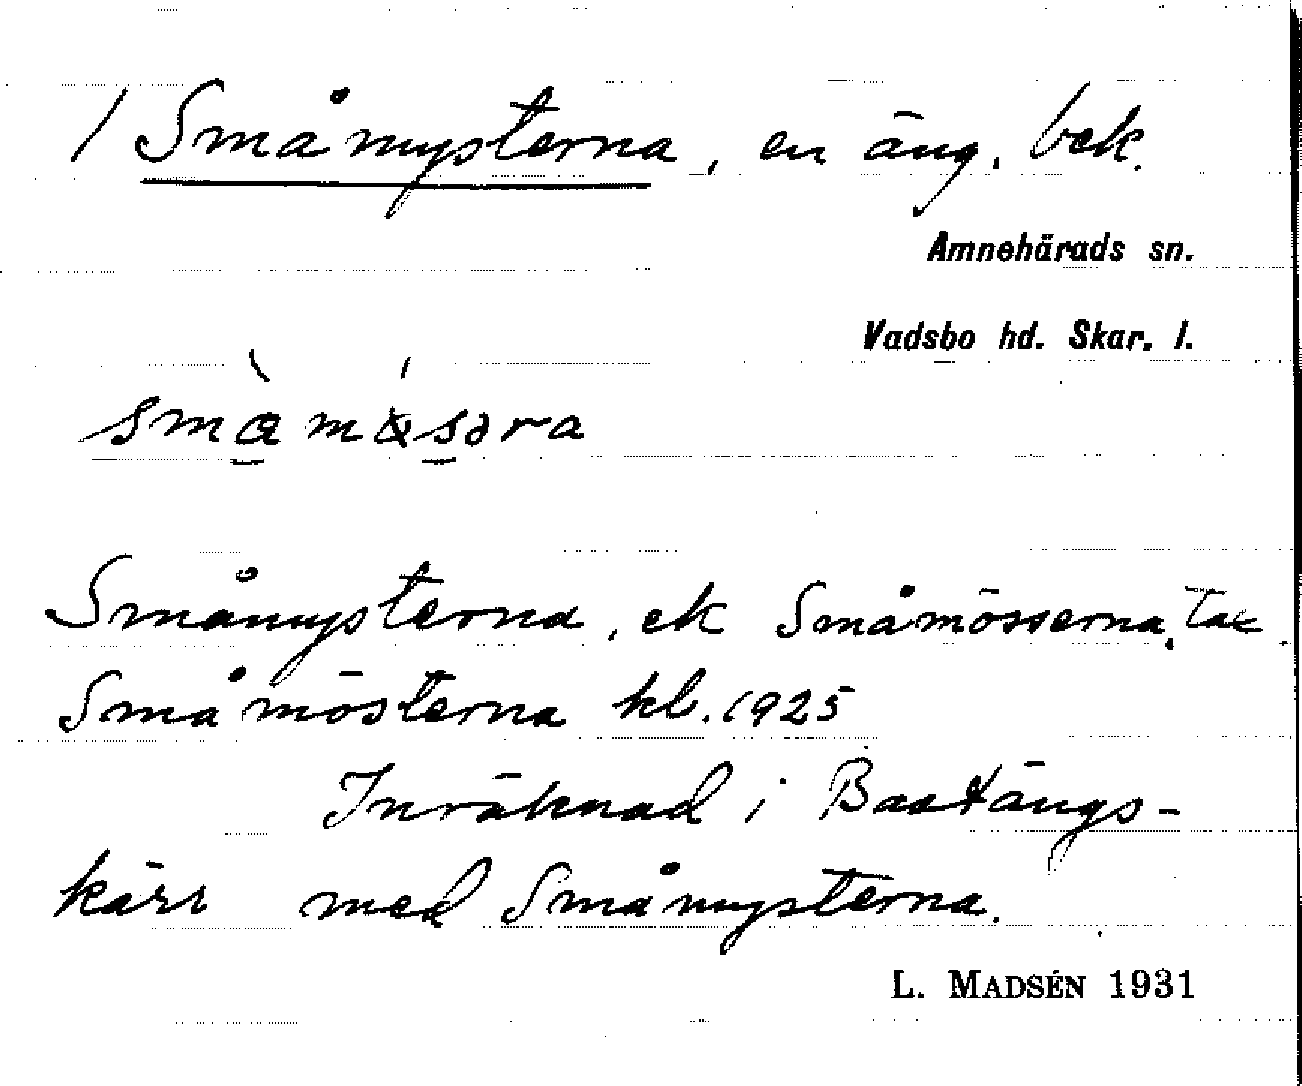 / Småmysterna, en äng. bek.
Amnehärads sn.
Vadsbo hd. Skar. l.
Småmysterna, ek Småmösserna, tax
Småmösterna kl. 1925
Inräknad i Bastängs-
kärr med Småmysterna.
L. MADSÉN 1931